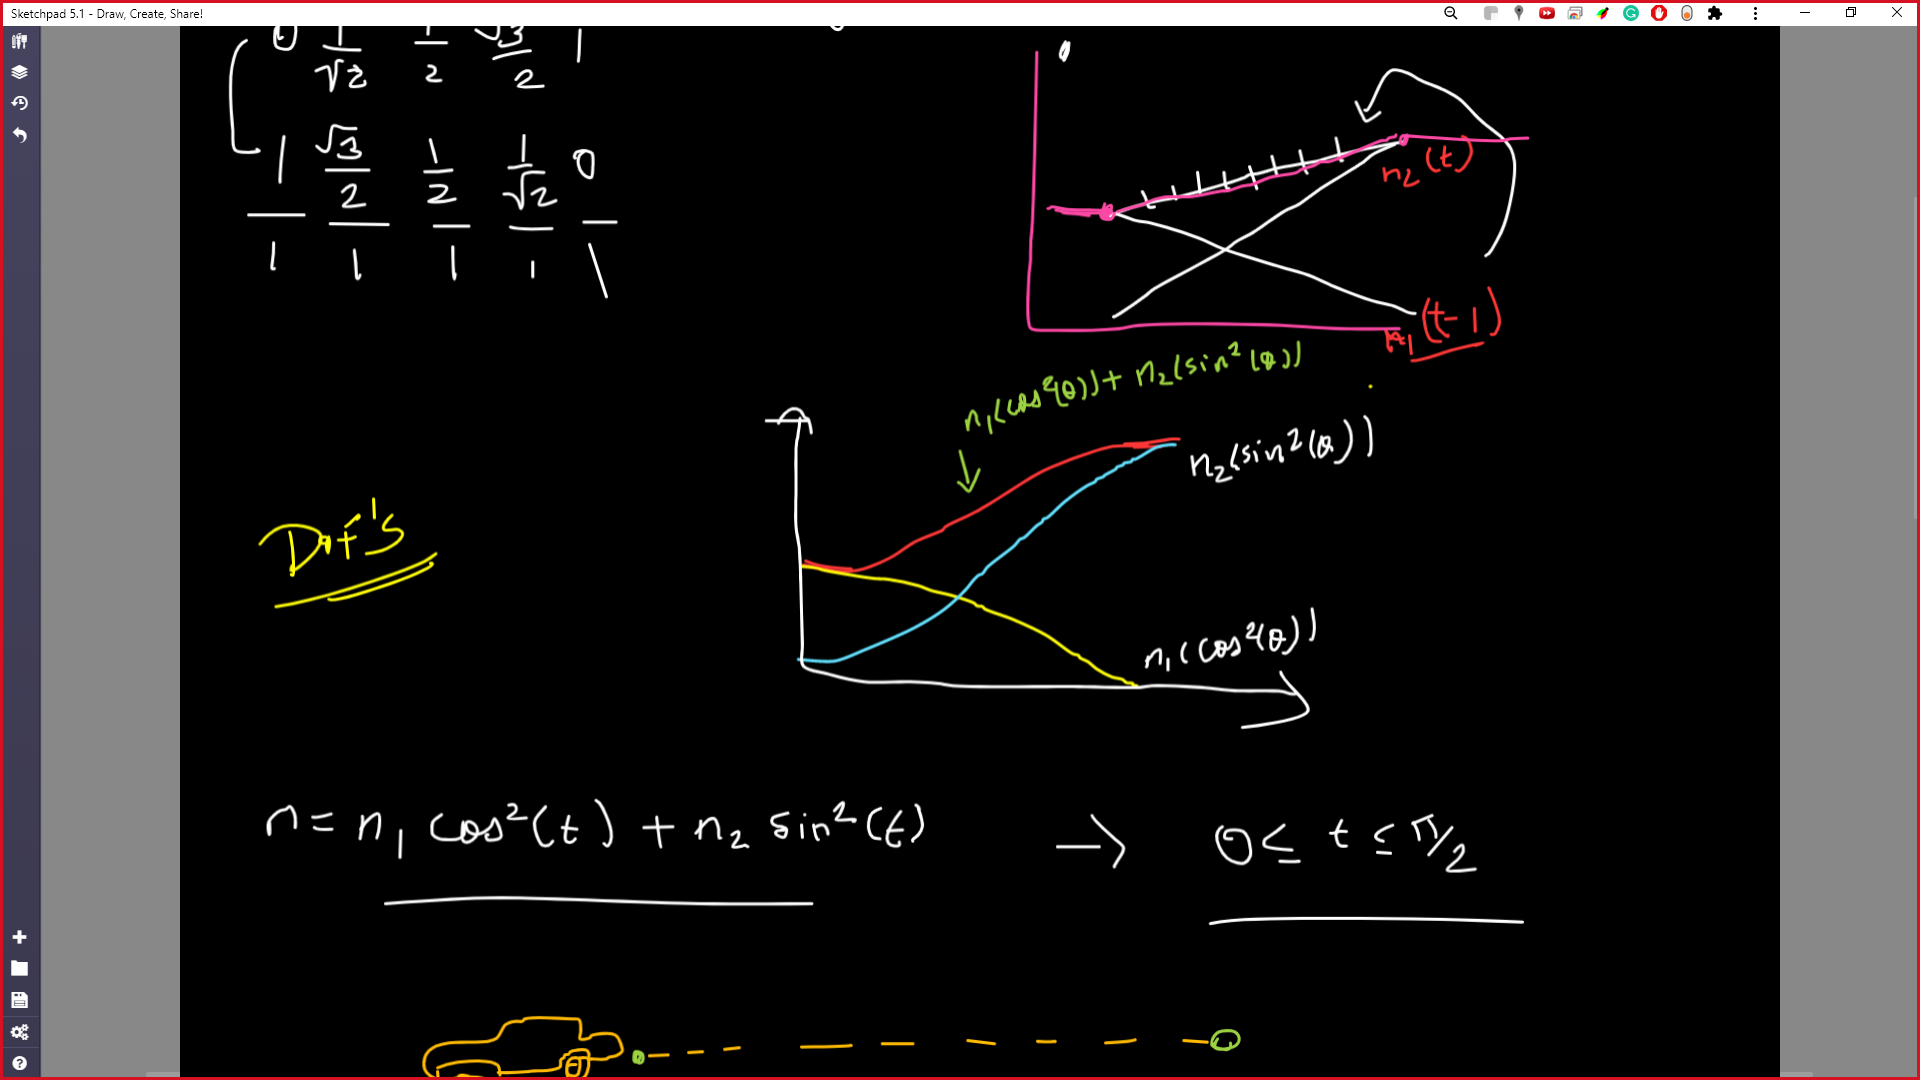 Sketchpad 5.1 - Draw, Create, Share!
0 1/√2 1/2 √3/2 1
1 √3/2 1/2 1/√2 0
1 1 1 1 1
n₂(t)
n₁(t-1)
n₁(cos²(θ))+n₂(sin²(θ))
n₂(sin²(θ))
n₁(cos²(θ))
n = n₁ cos²(t) + n₂ sin²(t) → 0 ≤ t ≤ π/2